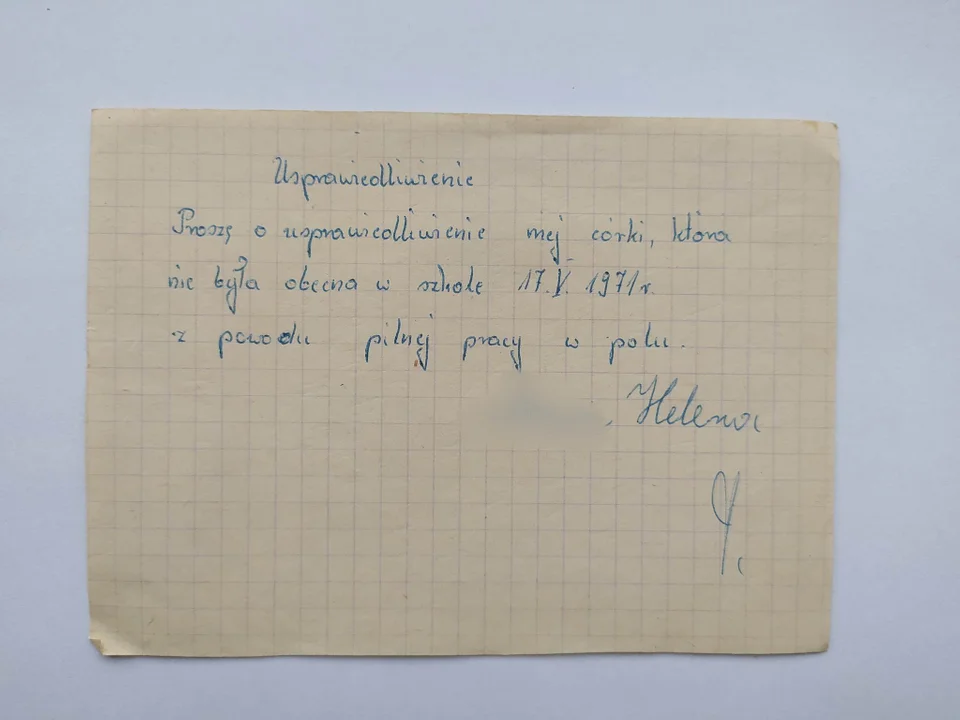 Usprawiedliwienie
Proszę o usprawiedliwienie mej córki, która
nie była obecna w szkole 17.V.1971r.
z powodu pilnej pracy w polu.
Helena